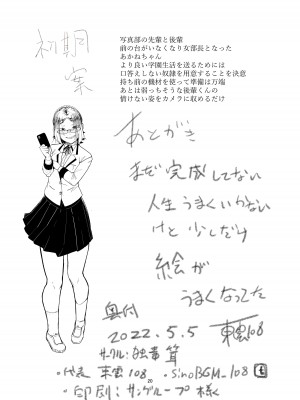 初期
案
写真部の先輩と後輩
前の台がいなくなり女部長となった
あかねちゃん
より良い学園生活を送るためには
口答えしない奴隷を用意することを決意
持ち前の機材を使って準備は万端
あとは弱っちそうな後輩くんの
情けない姿をカメラに収めるだけ
あとがき
まだ完成してない
人生うまくいかない
けど少しだけ
絵が
うまくなってた
奥付
2022.5.5 東雲108
サークル:独奏
・代表 東雲108 ・SinoBGM_108
20
・印刷:サングループ様